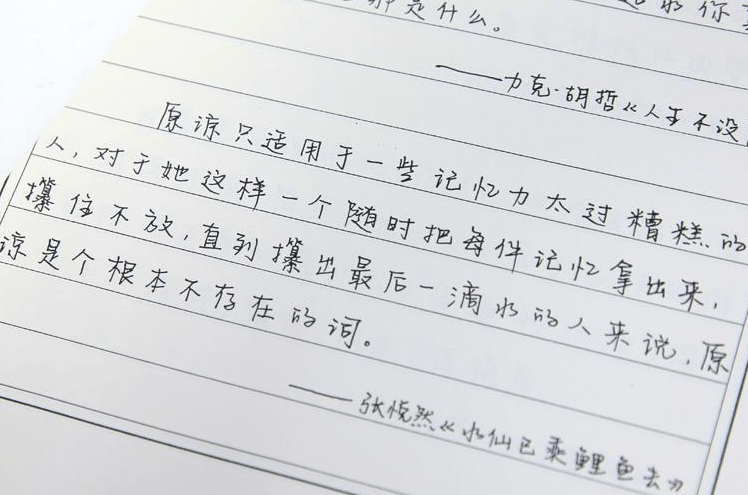 那是什么。
——力克·胡哲《人生不设
原谅只适用于一些记忆力太过糟糕的
人,对于她这样一个随时把每件记忆拿出来,
攥住不放,直到攥出最后一滴水的人来说,原
谅是个根本不存在的词。
——张悦然《水仙已乘鲤鱼去》